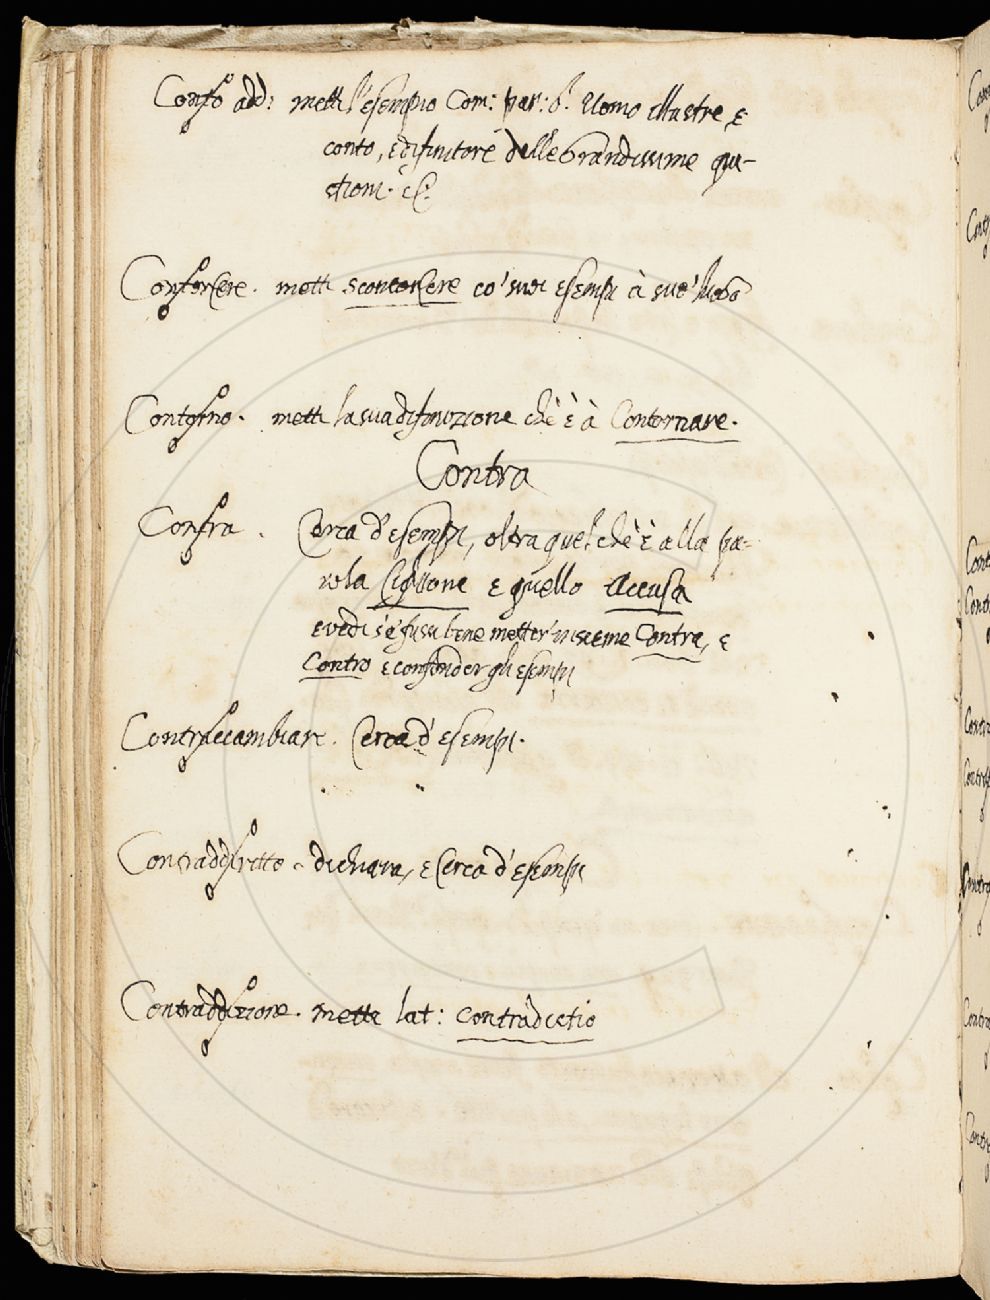 Conto add: metti l'esempio Com: par: 6. Uomo illustre, e
conto, e difinitore delle Grandissime que-
stioni. &c.
Contorcere. metti scontorcere co' suoi esempi à sue' luogo
Contorno. metti la sua difinizione che è à Contornare.
Contra
Contra. Cerca d'esempi, oltra quel che è alla pa-
rola Cagione e quello Accusa
e vedi s'e' fusse bene metter' insieme Contra, e
Contro e confonder gli esempi
Contraccambiare. Cerca d'esempi.
Contraddetto. dichiara, e Cerca d'esempi
Contraddizione. metti lat: contradictio